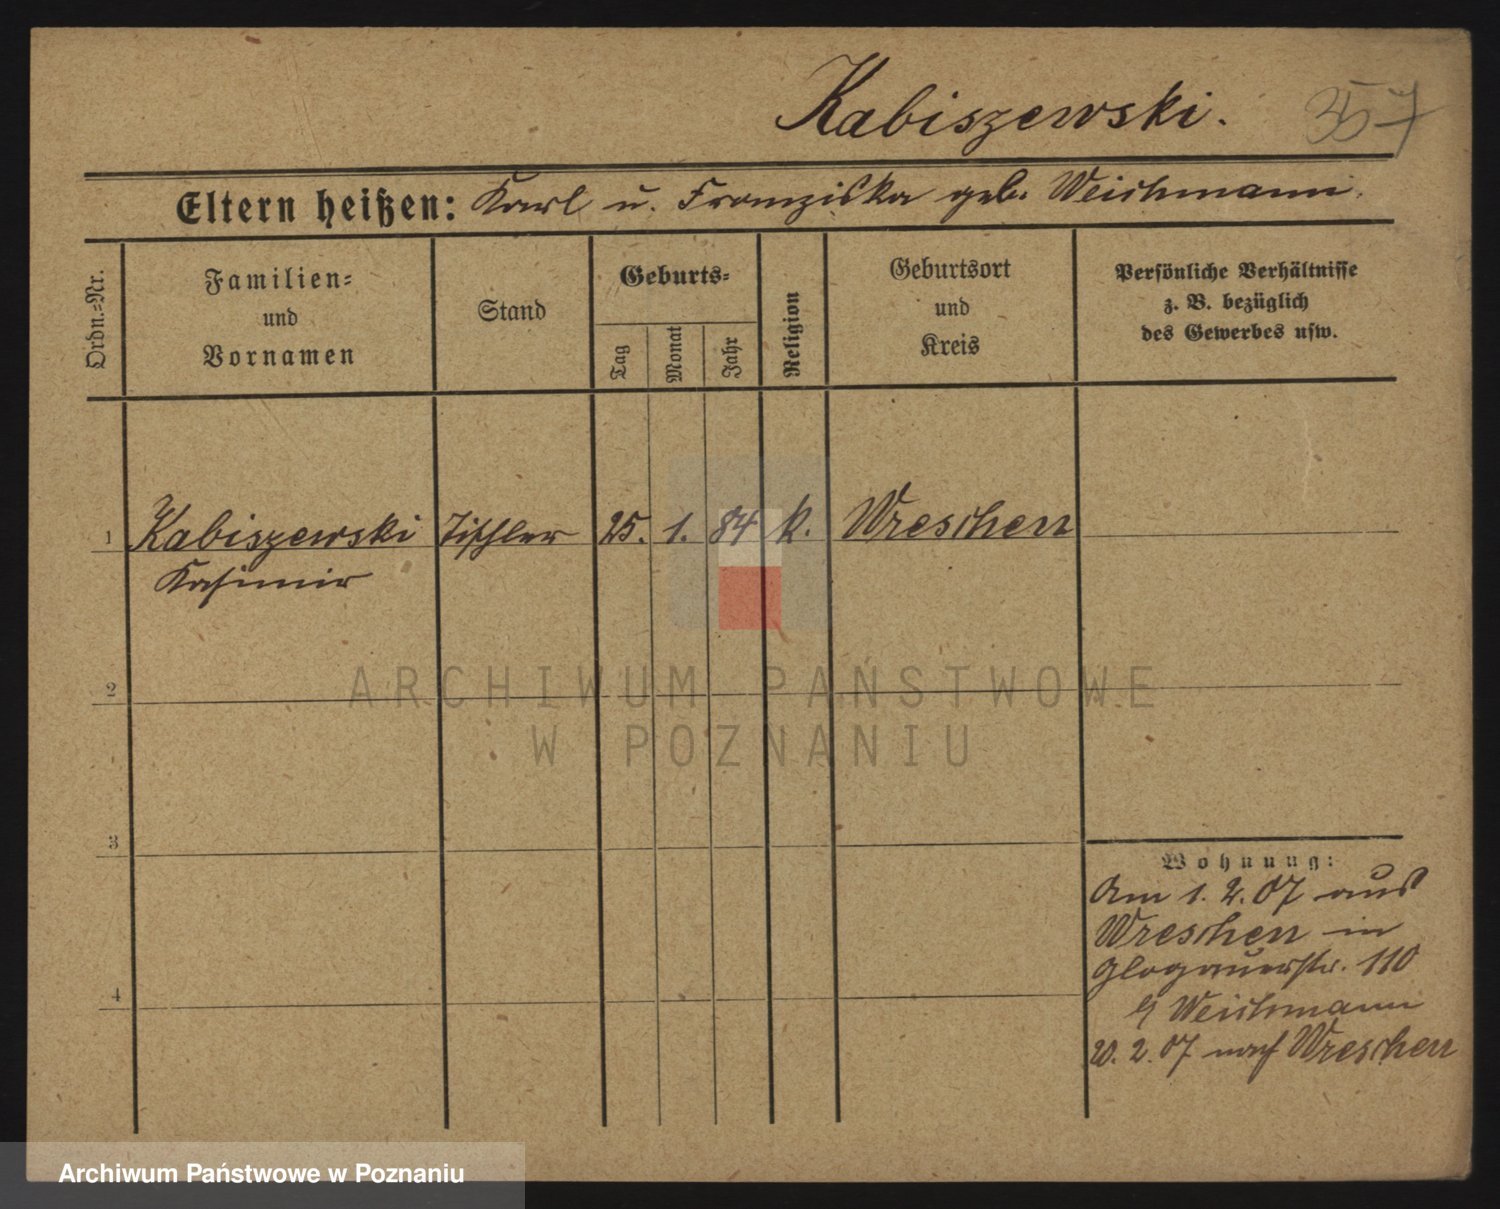 Kabiszewski. 357
Eltern heißen: Karl u. Franziska geb. Weichmann.
Ordn.-Nr.
Familien-
und
Vornamen
Stand
Geburts-
Tag
Monat
Jahr
Religion
Geburtsort
und
Kreis
Persönliche Verhältnisse
z. B. bezüglich
des Gewerbes usw.
1 Kabiszewski Tischler 25. 1. 84 k. Wreschen
Kasimir
2
ARCHIWUM PAŃSTWOWE
W POZNANIU
3
Wohnung:
Am 1. 2. 07 aus
Wreschen in
Glogauerstr. 110
4
Weichmann
20. 2. 07 nach Wreschen
Archiwum Państwowe w Poznaniu